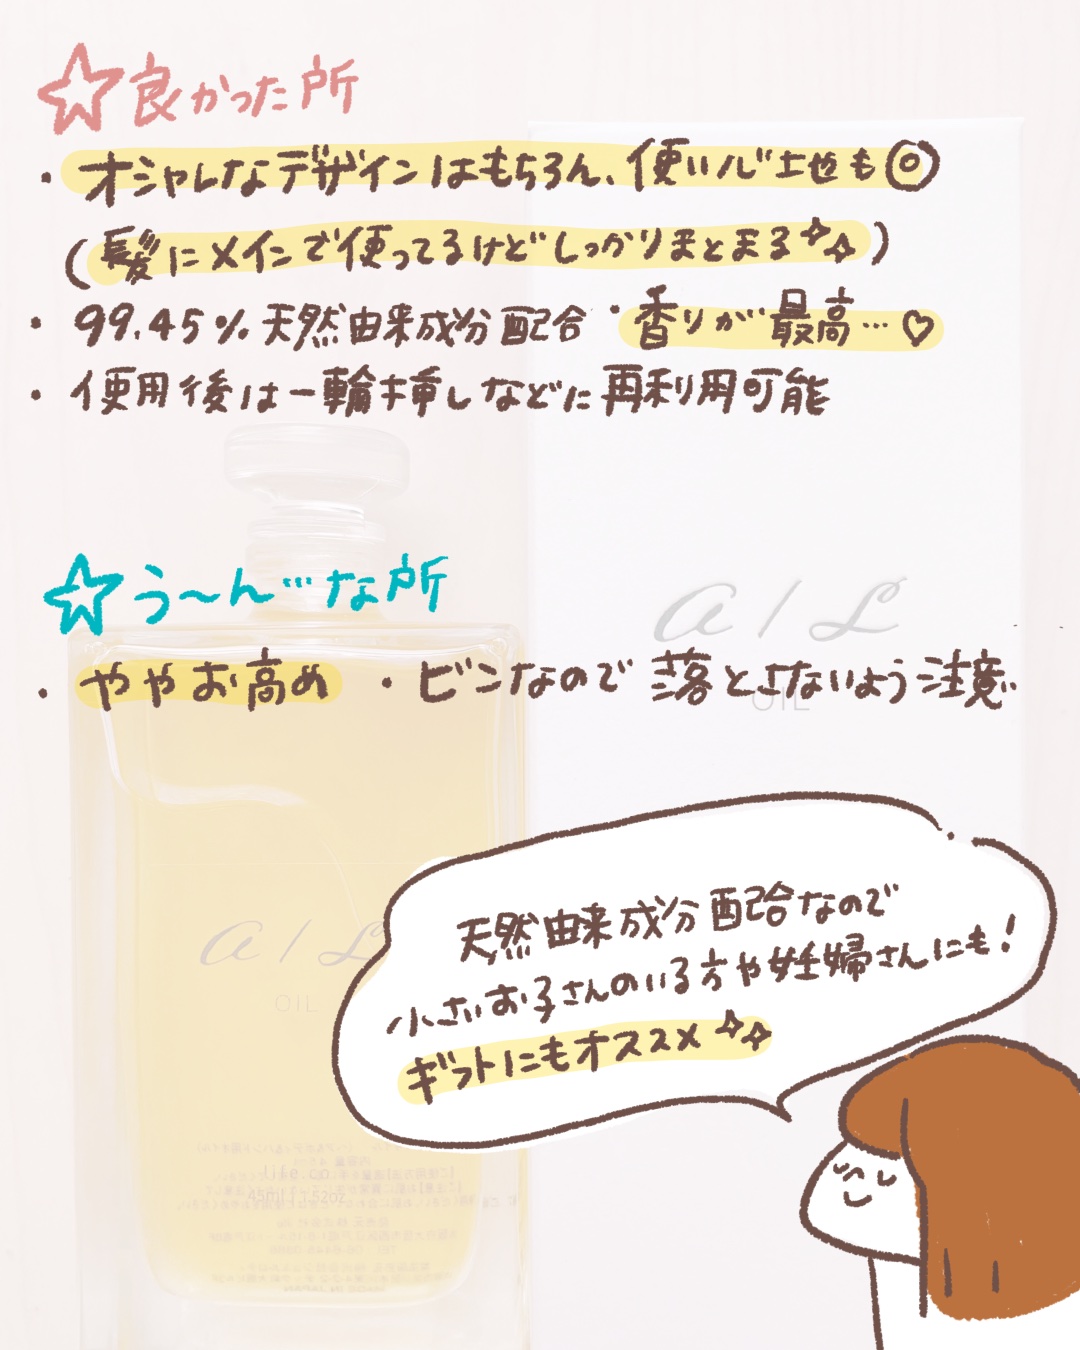 ☆良かった所
・オシャレなデザインはもちろん、使い心地も◎
(髪にメインで使ってるけどしっかりまとまる✧✧)
・99.45%天然由来成分配合 ・香りが最高…♡
・使用後は一輪挿しなどに再利用可能
☆う〜ん…な所
・ややお高め ・ビンなので落とさないよう注意
a / L
OIL
天然由来成分配合なので
小さいお子さんのいる方や妊婦さんにも!
ギフトにもオススメ✧✧
a / L
OIL
life co
45ml | 1.52oz